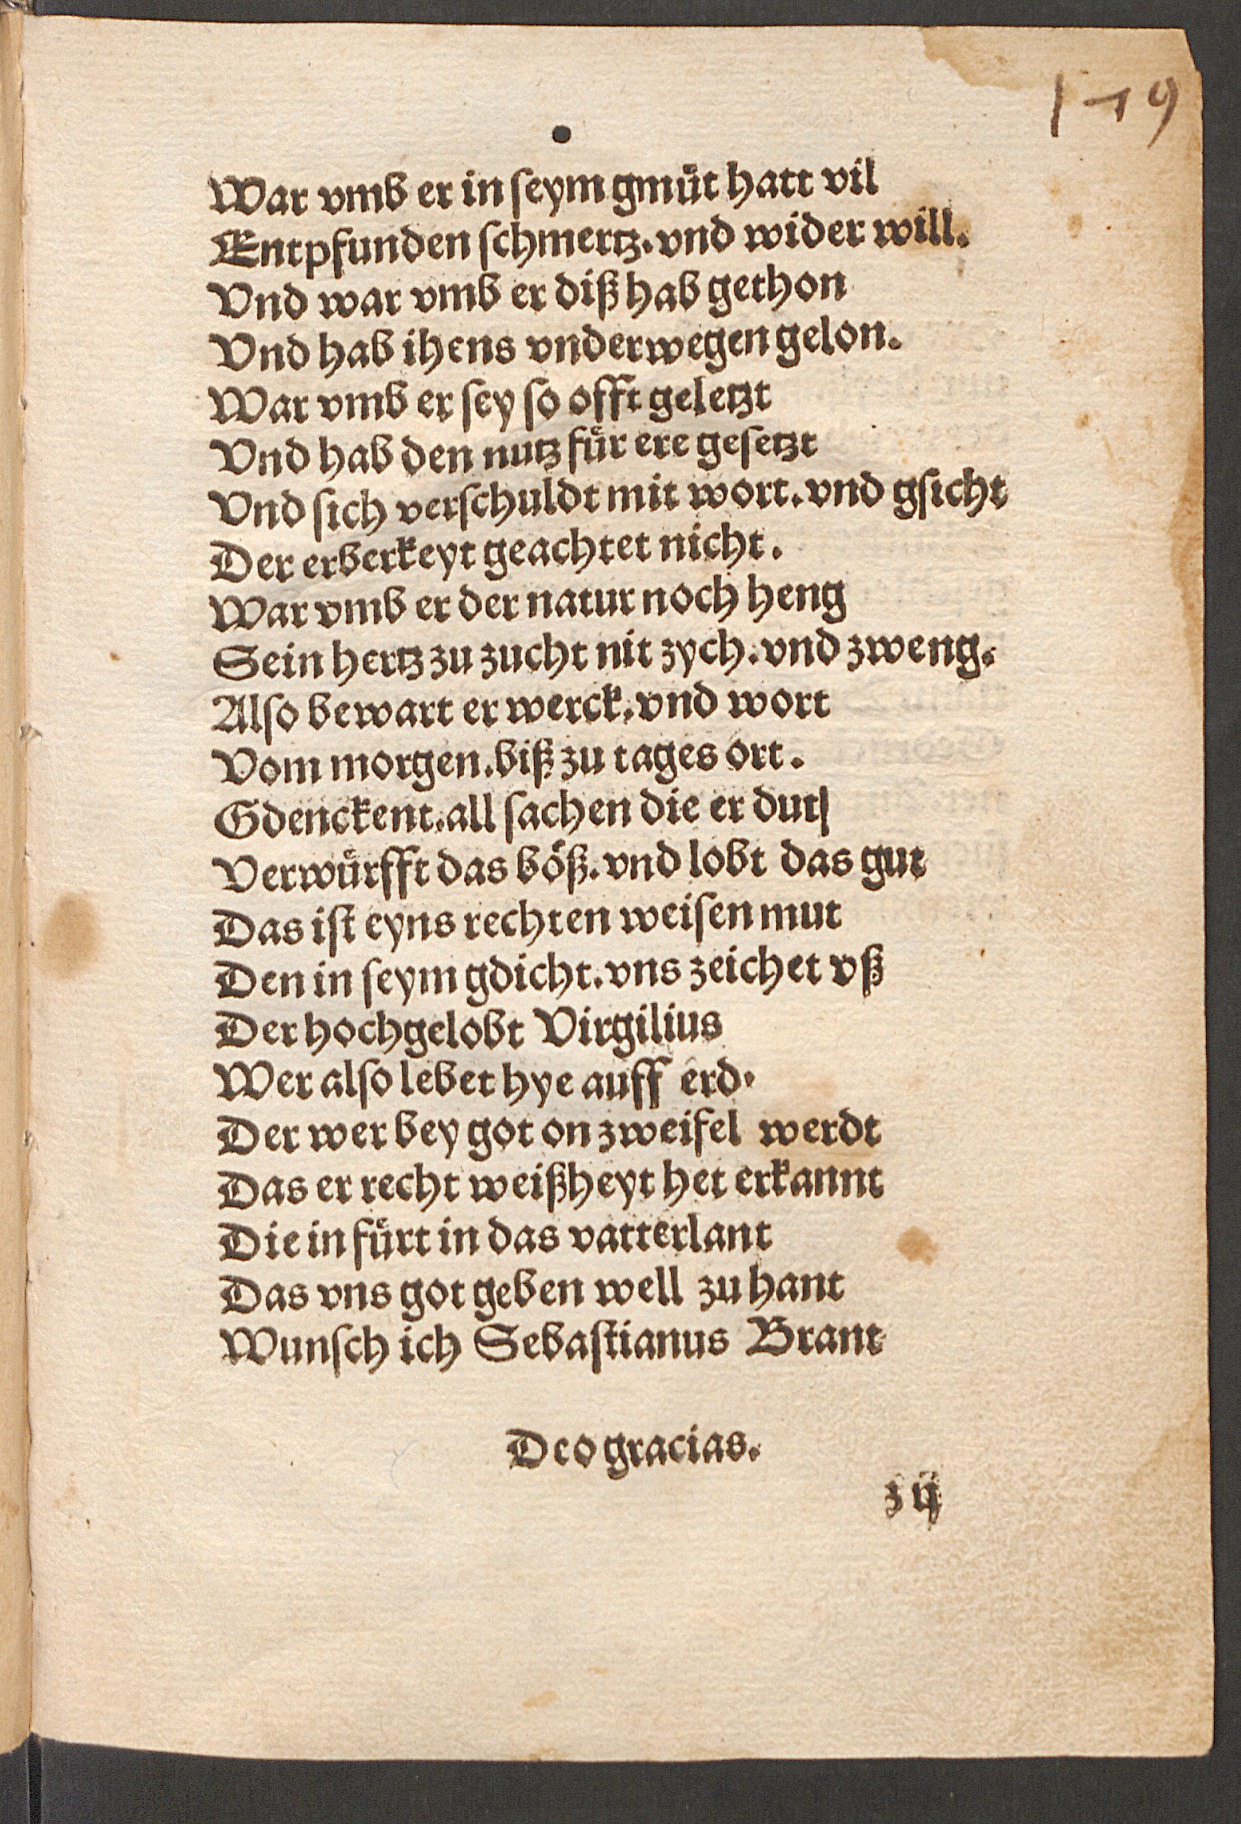 179
War vmb er in ſeym gmuͤt hatt vil
Entpfunden ſchmertz. vnd wider will.
Vnd war vmb er diß hab gethon
Vnd hab ihens vnderwegen gelon.
War vmb er ſey ſo offt geletzt
Vnd hab den nutz fuͤr ere geſetzt
Vnd ſich verſchuldt mit wort. vnd gſicht
Der erberkeyt geachtet nicht.
War vmb er der natur noch heng
Sein hertz zu zucht nit zych. vnd zweng.
Alſo bewart er werck. vnd wort
Vom morgen. biß zu tages ort.
Gdenckent. all ſachen die er dut
Verwuͤrfft das boͤß. vnd lobt das gut
Das iſt eyns rechten weiſen mut
Den in ſeym gdicht. vns zeichet vß
Der hochgelobt Virgilius
Wer alſo lebet hye auff erd.
Der wer bey got on zweifel werdt
Das er recht weißheyt het erkannt
Die in fuͤrt in das vatterlant
Das vns got geben well zu hant
Wunſch ich Sebaſtianus Brant
Deo gracias.
z ij